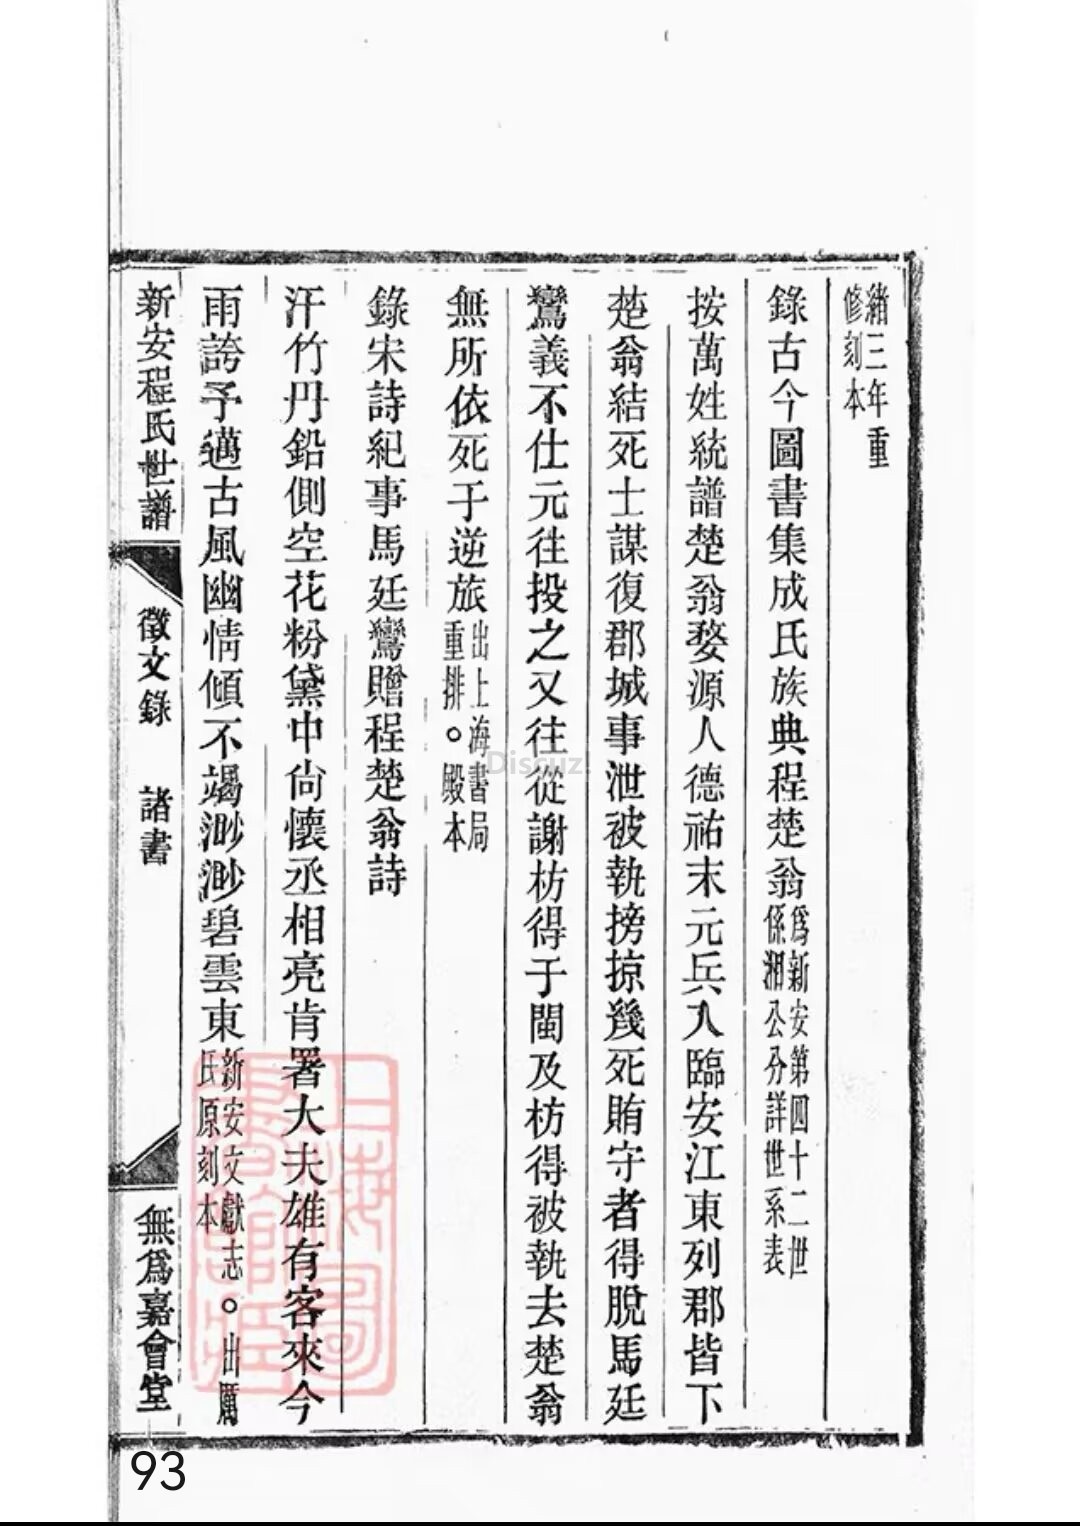 緒三年重
修刻本
錄古今圖書集成氏族典程楚翁爲新安第四十二世
係湘公分詳世系表
按萬姓統譜楚翁婺源人德祐末元兵入臨安江東列郡皆下
楚翁結死士謀復郡城事泄被執搒掠幾死賄守者得脫馬廷
鸞義不仕元往投之又往從謝枋得于閩及枋得被執去楚翁
無所依死于逆旅出上海書局
重排。殿本
錄宋詩紀事馬廷鸞贈程楚翁詩
汗竹丹鉛側空花粉黛中尙懷丞相亮肯署大夫雄有客來今
雨誇予邁古風幽情傾不竭渺渺碧雲東新安文獻志。出厲
氏原刻本
新安程氏世譜
徵文錄 諸書
無爲嘉會堂
上海圖書館藏
Discuz!
93